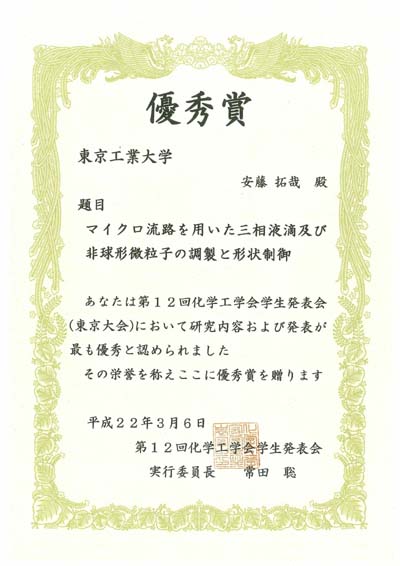 優秀賞
東京工業大学
安藤 拓哉 殿
題目
マイクロ流路を用いた三相液滴及び
非球形微粒子の調製と形状制御
あなたは第12回化学工学会学生発表会
(東京大会)において研究内容および発表が
最も優秀と認められました
その栄誉を称えここに優秀賞を贈ります
平成22年3月6日
第12回化学工学会学生発表会
実行委員長 常田 聡